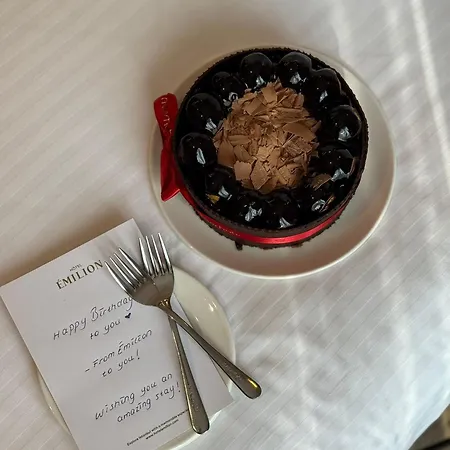 HOTEL
ÉMILION
Happy Birthday
to you ♥
- From Émilion
to you!
Wishing you an
amazing stay!